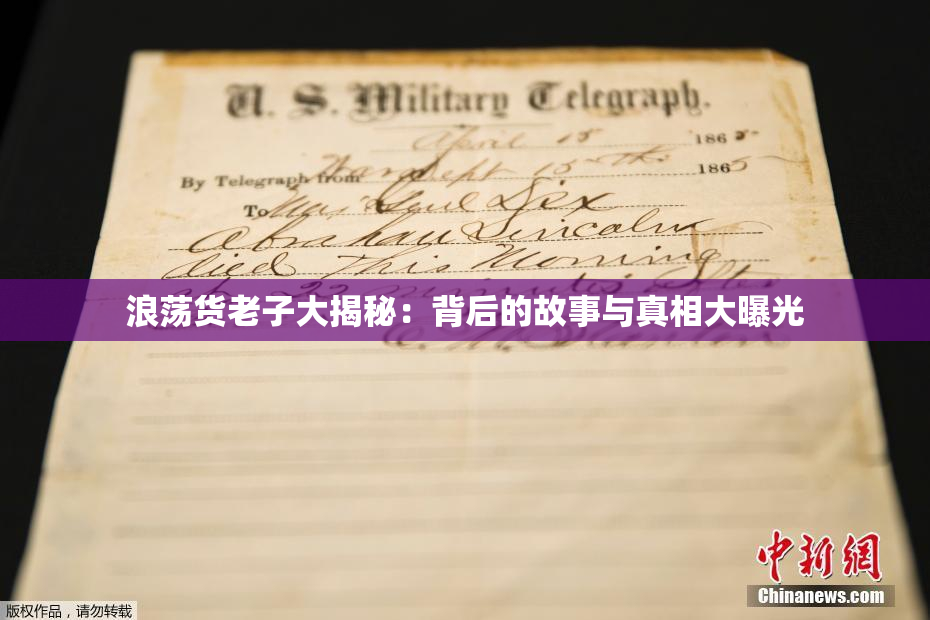 U. S. Military Telegraph.
April 15 1865
By Telegraph from War Dept 15th 1865
To Maj Genl Dix
Abraham Lincoln
died This Morning
at 22 minutes after
浪荡货老子大揭秘：背后的故事与真相大曝光
E. M. Stanton
中新网
Chinanews.com
版权作品，请勿转载